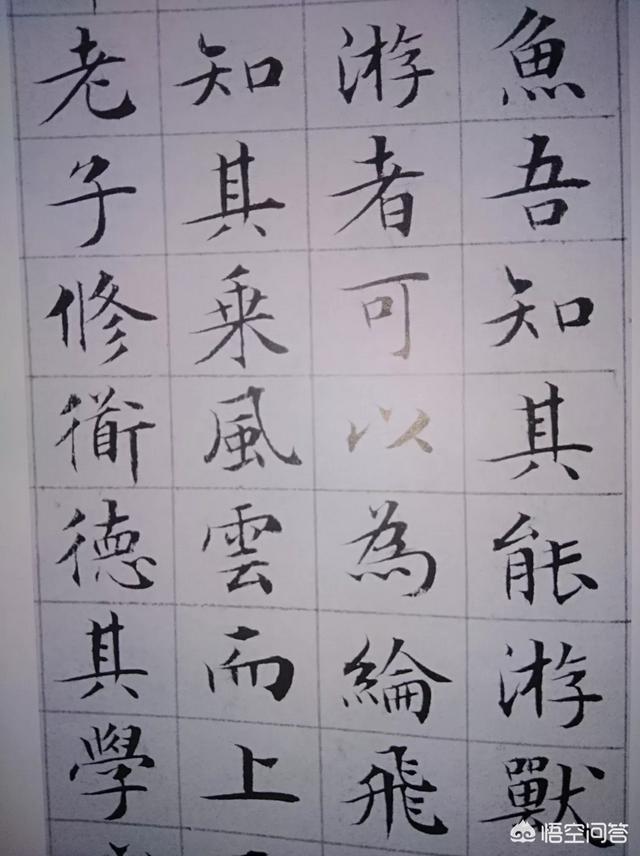 魚吾知其能游獸
游者可以為綸飛
知其乗風雲而上
老子修衜德其學
悟空问答